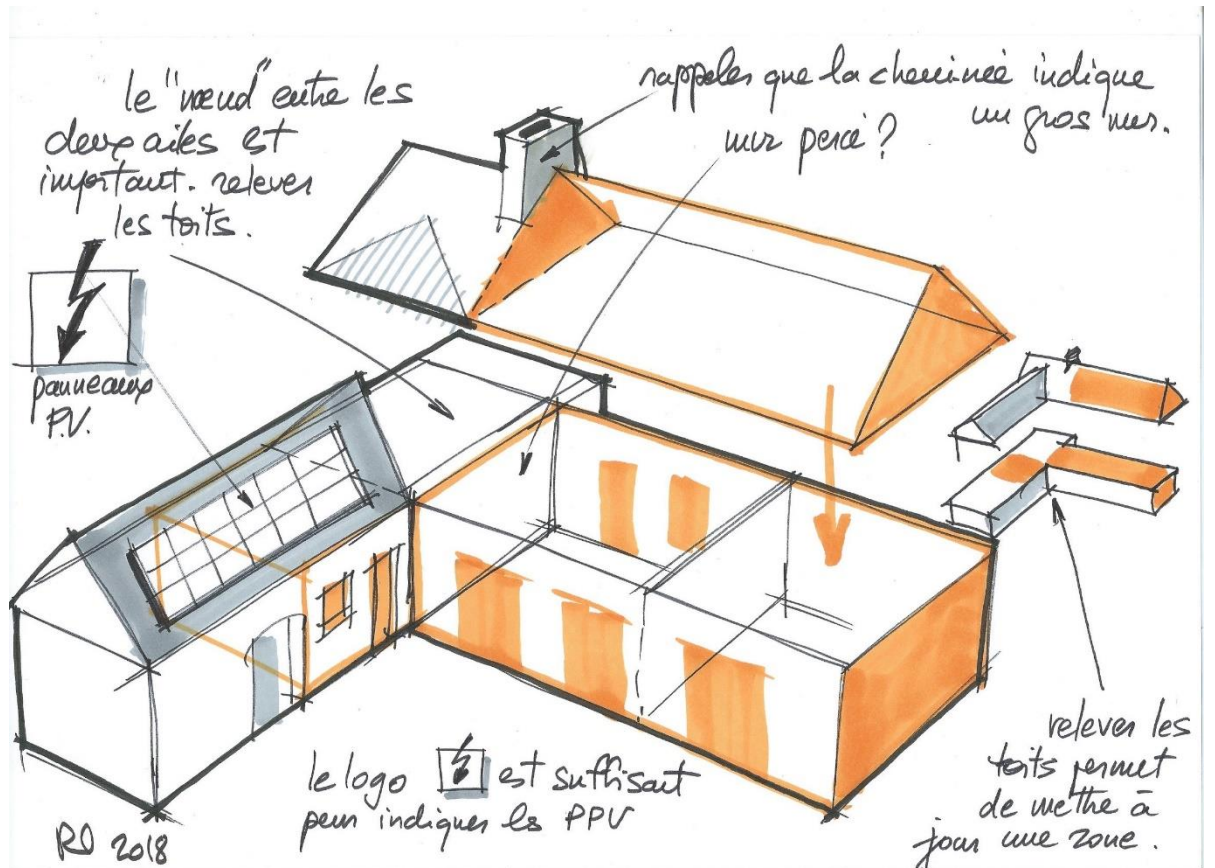 le "nœud" entre les
deux ailes est
important. relever
les toits.
rappeler que la cheminée indique
un gros mur.
mur percé ?
panneaux
P.V.
le logo est suffisant
pour indiquer les PPV
relever les
toits permet
de mettre à
jour une zone.
RD 2018